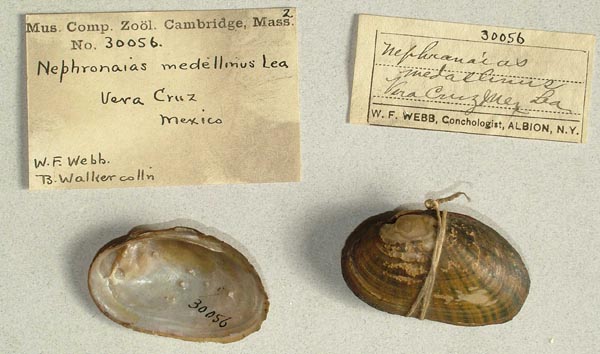 2
Mus. Comp. Zoöl. Cambridge, Mass.
No. 30056.
Nephronaias medellinus Lea
Vera Cruz
Mexico
W.F. Webb.
B. Walker colln
30056
Nephranaias
medallinus
Vera Cruz Mex Lea
W. F. WEBB, Conchologist, ALBION, N.Y.
30056